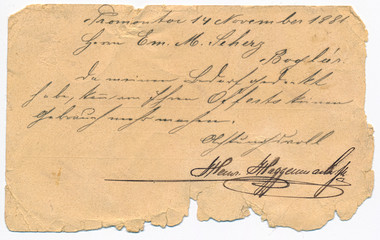 Promontor 14 November 1881
Herrn Em. M. Scherz
Boglár
Da meinen Bedarf gedeckt
habe, kann von Ihren Offerte keinen
Gebrauch mehr machen.
Achtungsvoll
Henr. Haggenmacher